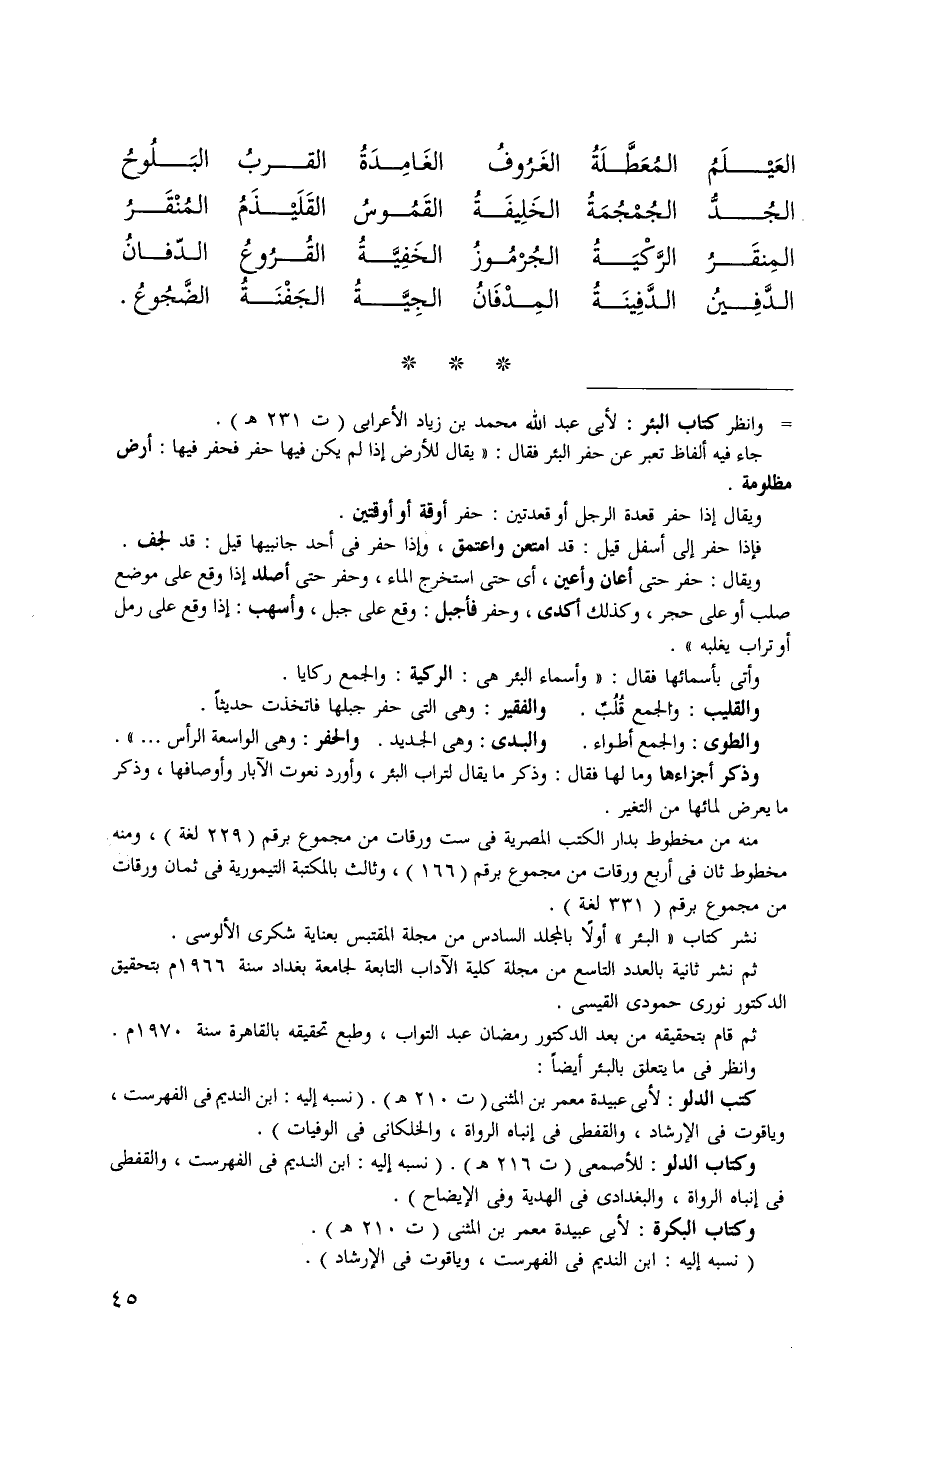 العَيْـلَمُ المُعَطَّـلَةُ الغَرُوفُ الغَامِـدَةُ القـربُ البَـلُوحُ
الجُـدُّ الجُمْجُمَةُ الخَلِيفَـةُ القَمُـوسُ القَلَيْـذَمُ المُنْقَـرُ
المِنقَـرُ الرَّكْيَـةُ الجُرْمُـوزُ الخَفِيَّـةُ القُـرُوعُ الـدّفـانُ
الدَّفِـينُ الدَّفِينَـةُ المِـدْفَانُ الجِيَّـةُ الجَفْنَـةُ الضَّجُوعُ .
* * *
= وانظر كتاب البئر : لأبى عبد الله محمد بن زياد الأعرابى ( ت ٢٣١ هـ ) .
جاء فيه ألفاظ تعبر عن حفر البئر فقال : « يقال للأرض إذا لم يكن فيها حفر فحفر فيها : أرض
مظلومة .
ويقال إذا حفر قعدة الرجل أو قعدتين : حفر أوقة أو أوقتين .
فإذا حفر إلى أسفل قيل : قد امتعن واعتمق ، وإذا حفر فى أحد جانبيها قيل : قد لجف .
ويقال : حفر حتى أعان وأعين ، أى حتى استخرج الماء ، وحفر حتى أصلد إذا وقع على موضع
صلب أو على حجر ، وكذلك أكدى ، وحفر فأجبل : وقع على جبل ، وأسهب : إذا وقع على رمل
أو تراب يغلبه » .
وأتى بأسمائها فقال : « وأسماء البئر هى : الركية : والجمع ركايا .
والقليب : والجمع قُلُبٌ . والفقير : وهى التى حفر جبلها فاتخذت حديثاً .
والطوى : والجمع أطواء . والبدى : وهى الجديد . والحفر : وهى الواسعة الرأس ... » .
وذكر أجزاءها وما لها فقال : وذكر ما يقال لتراب البئر ، وأورد نعوت الآبار وأوصافها ، وذكر
ما يعرض لمائها من التغير .
منه من مخطوط بدار الكتب المصرية فى ست ورقات من مجموع برقم ( ٢٢٩ لغة ) ، ومنه
مخطوط ثان فى أربع ورقات من مجموع برقم ( ١٦٦ ) ، وثالث بالمكتبة التيمورية فى ثمان ورقات
من مجموع برقم ( ٣٣١ لغة ) .
نشر كتاب « البئر » أولًا بالمجلد السادس من مجلة المقتبس بعناية شكرى الألوسى .
ثم نشر ثانية بالعدد التاسع من مجلة كلية الآداب التابعة لجامعة بغداد سنة ١٩٦٦م بتحقيق
الدكتور نورى حمودى القيسى .
ثم قام بتحقيقه من بعد الدكتور رمضان عبد التواب ، وطبع تحقيقه بالقاهرة سنة ١٩٧٠م .
وانظر فى ما يتعلق بالبئر أيضاً :
كتب الدلو : لأبى عبيدة معمر بن المثنى ( ت ٢١٠ هـ ) . ( نسبه إليه : ابن النديم فى الفهرست ،
وياقوت فى الإرشاد ، والقفطى فى إنباه الرواة ، والخلكانى فى الوفيات ) .
وكتاب الدلو : للأصمعى ( ت ٢١٦ هـ ) . ( نسبه إليه : ابن النديم فى الفهرست ، والقفطى
فى إنباه الرواة ، والبغدادى فى الهدية وفى الإيضاح ) .
وكتاب البكرة : لأبى عبيدة معمر بن المثنى ( ت ٢١٠ هـ ) .
( نسبه إليه : ابن النديم فى الفهرست ، وياقوت فى الإرشاد ) .
٤٥